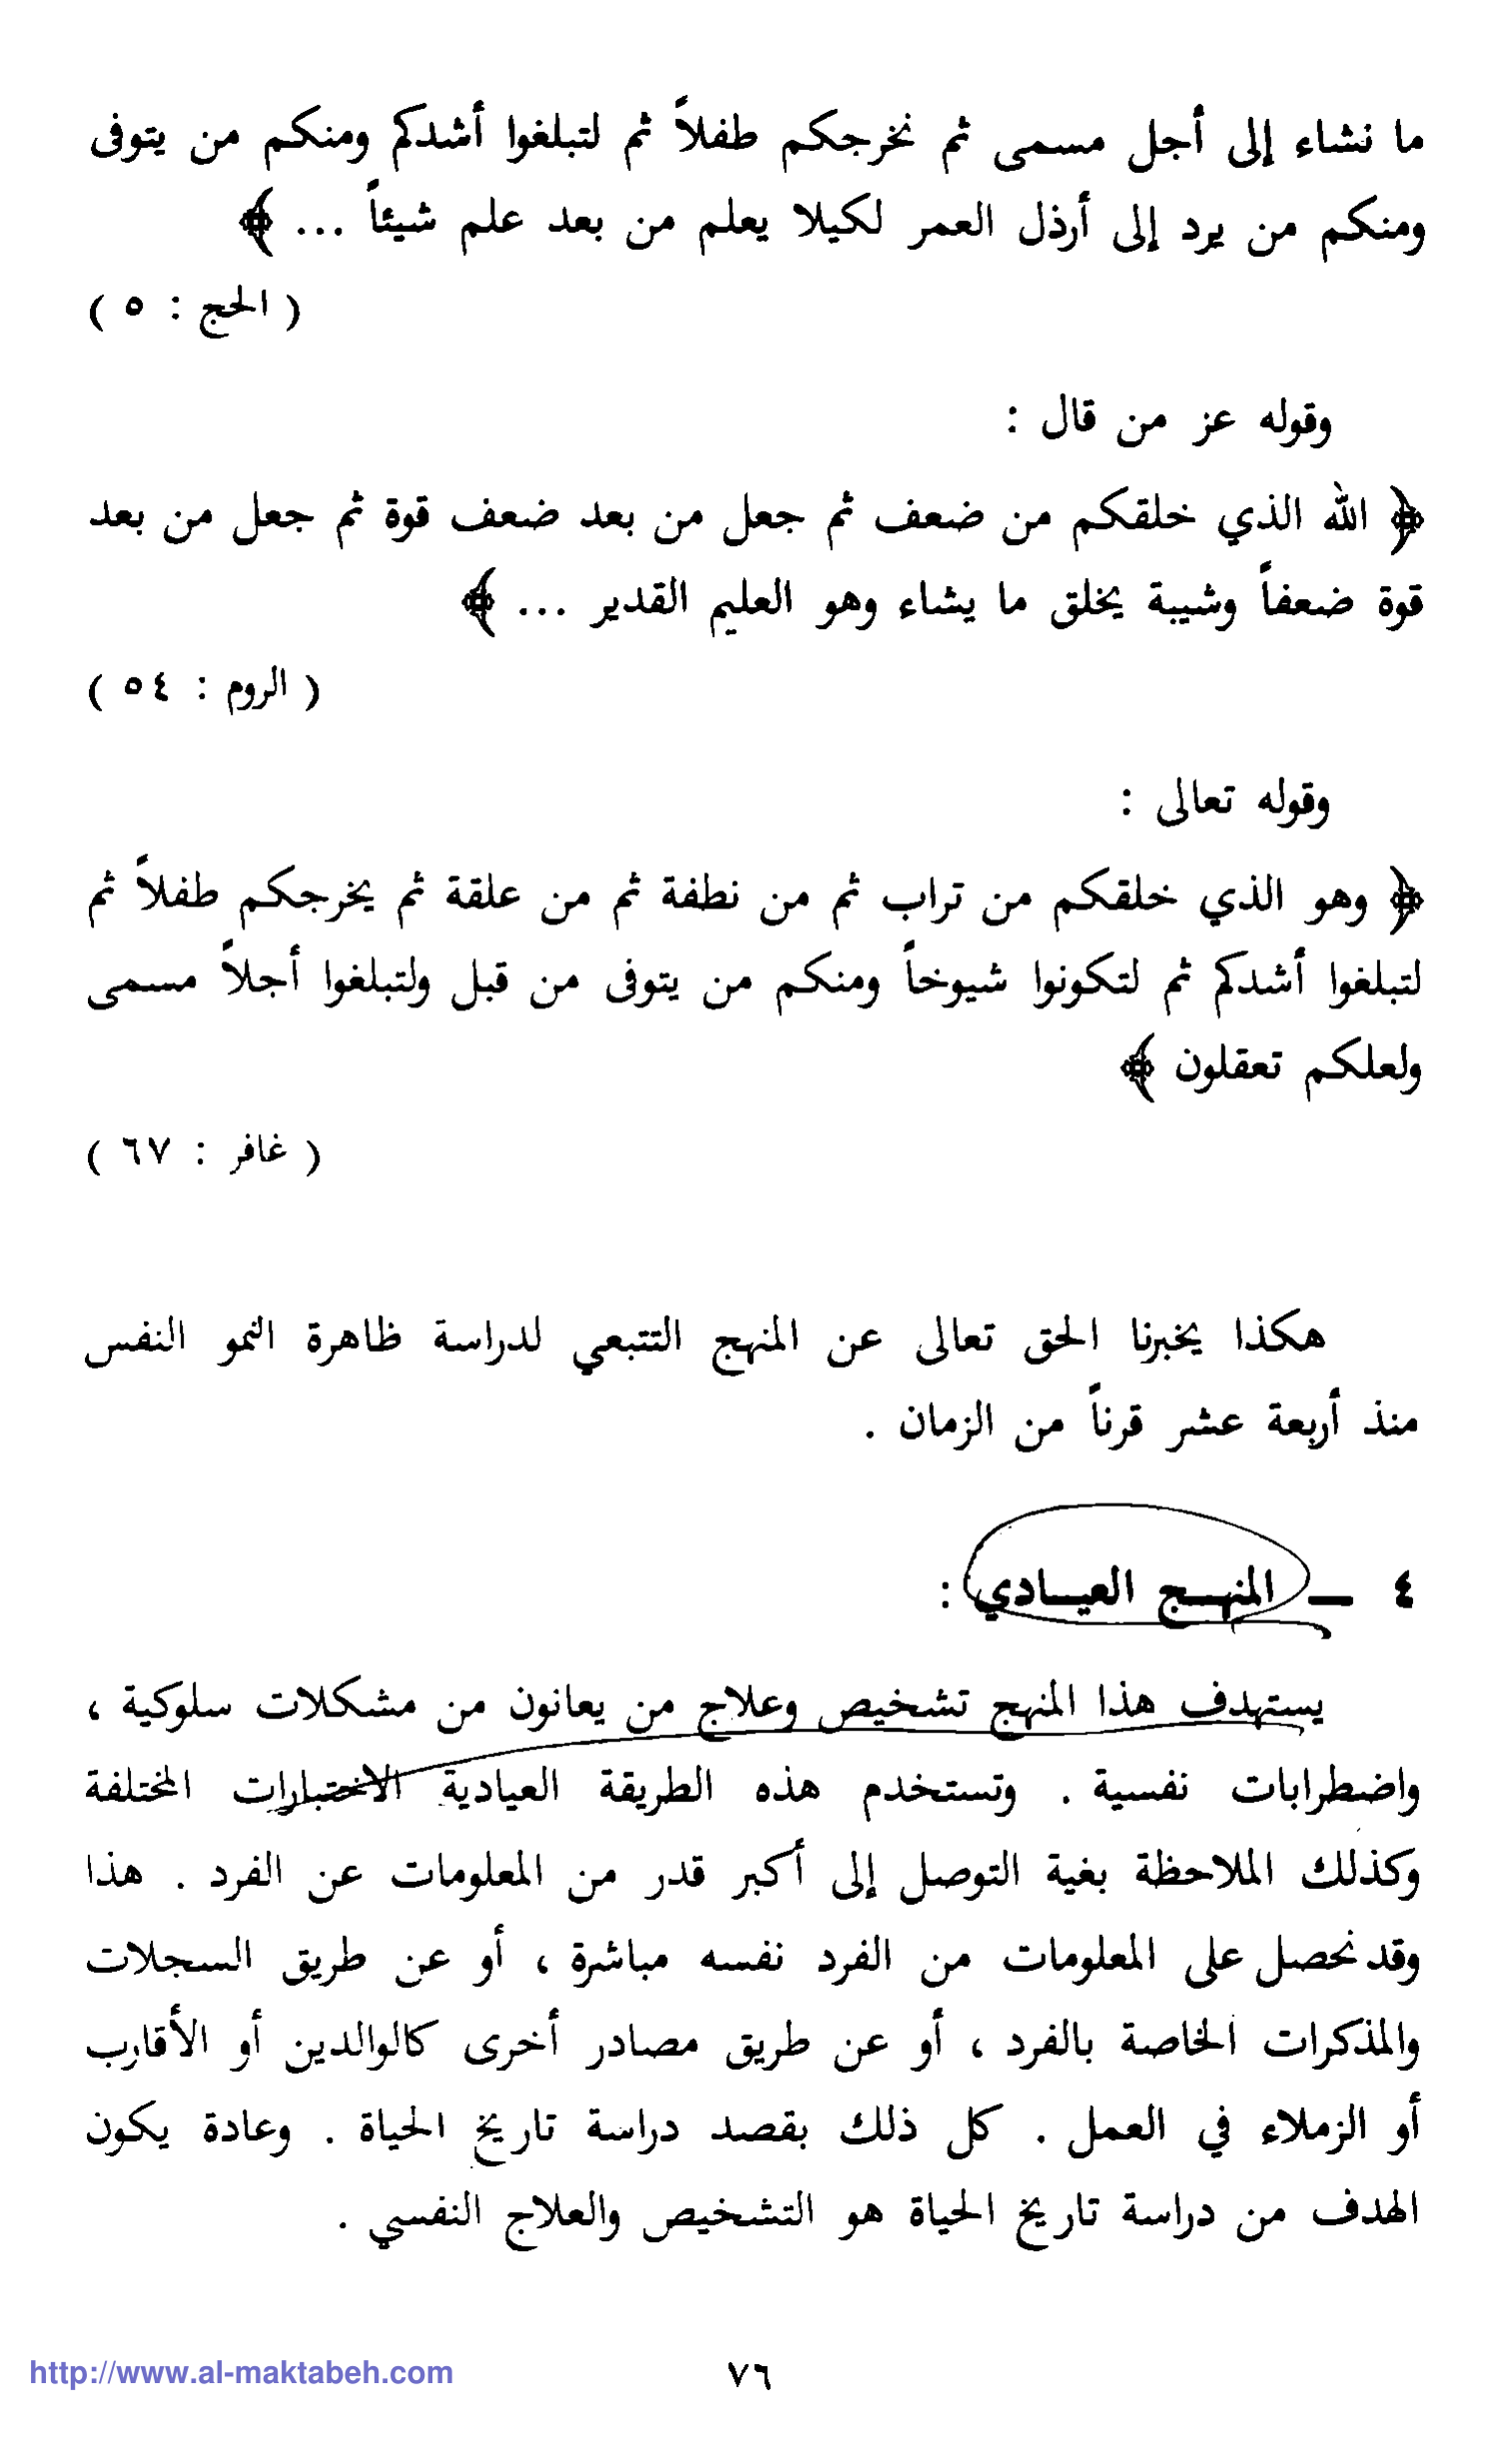 ما نشاء إلى أجل مسمى ثم نخرجكم طفلاً ثم لتبلغوا أشدكم ومنكم من يتوفى
ومنكم من يرد إلى أرذل العمر لكيلا يعلم من بعد علم شيئاً ... ﴾
( الحج : ٥ )
وقوله عز من قال :
﴿ الله الذي خلقكم من ضعف ثم جعل من بعد ضعف قوة ثم جعل من بعد
قوة ضعفاً وشيبة يخلق ما يشاء وهو العليم القدير ... ﴾
( الروم : ٥٤ )
وقوله تعالى :
﴿ وهو الذي خلقكم من تراب ثم من نطفة ثم من علقة ثم يخرجكم طفلاً ثم
لتبلغوا أشدكم ثم لتكونوا شيوخاً ومنكم من يتوفى من قبل ولتبلغوا أجلاً مسمى
ولعلكم تعقلون ﴾
( غافر : ٦٧ )
هكذا يخبرنا الحق تعالى عن المنهج التتبعي لدراسة ظاهرة النمو النفس
منذ أربعة عشر قرناً من الزمان .
٤ — المنهـج العيـادي :
يستهدف هذا المنهج تشخيص وعلاج من يعانون من مشكلات سلوكية ،
واضطرابات نفسية . وتستخدم هذه الطريقة العيادية الاختبارات المختلفة
وكذلك الملاحظة بغية التوصل إلى أكبر قدر من المعلومات عن الفرد . هذا
وقد نحصل على المعلومات من الفرد نفسه مباشرة ، أو عن طريق السجلات
والمذكرات الخاصة بالفرد ، أو عن طريق مصادر أخرى كالوالدين أو الأقارب
أو الزملاء في العمل . كل ذلك بقصد دراسة تاريخ الحياة . وعادة يكون
الهدف من دراسة تاريخ الحياة هو التشخيص والعلاج النفسي .
٧٦
http://www.al-maktabeh.com